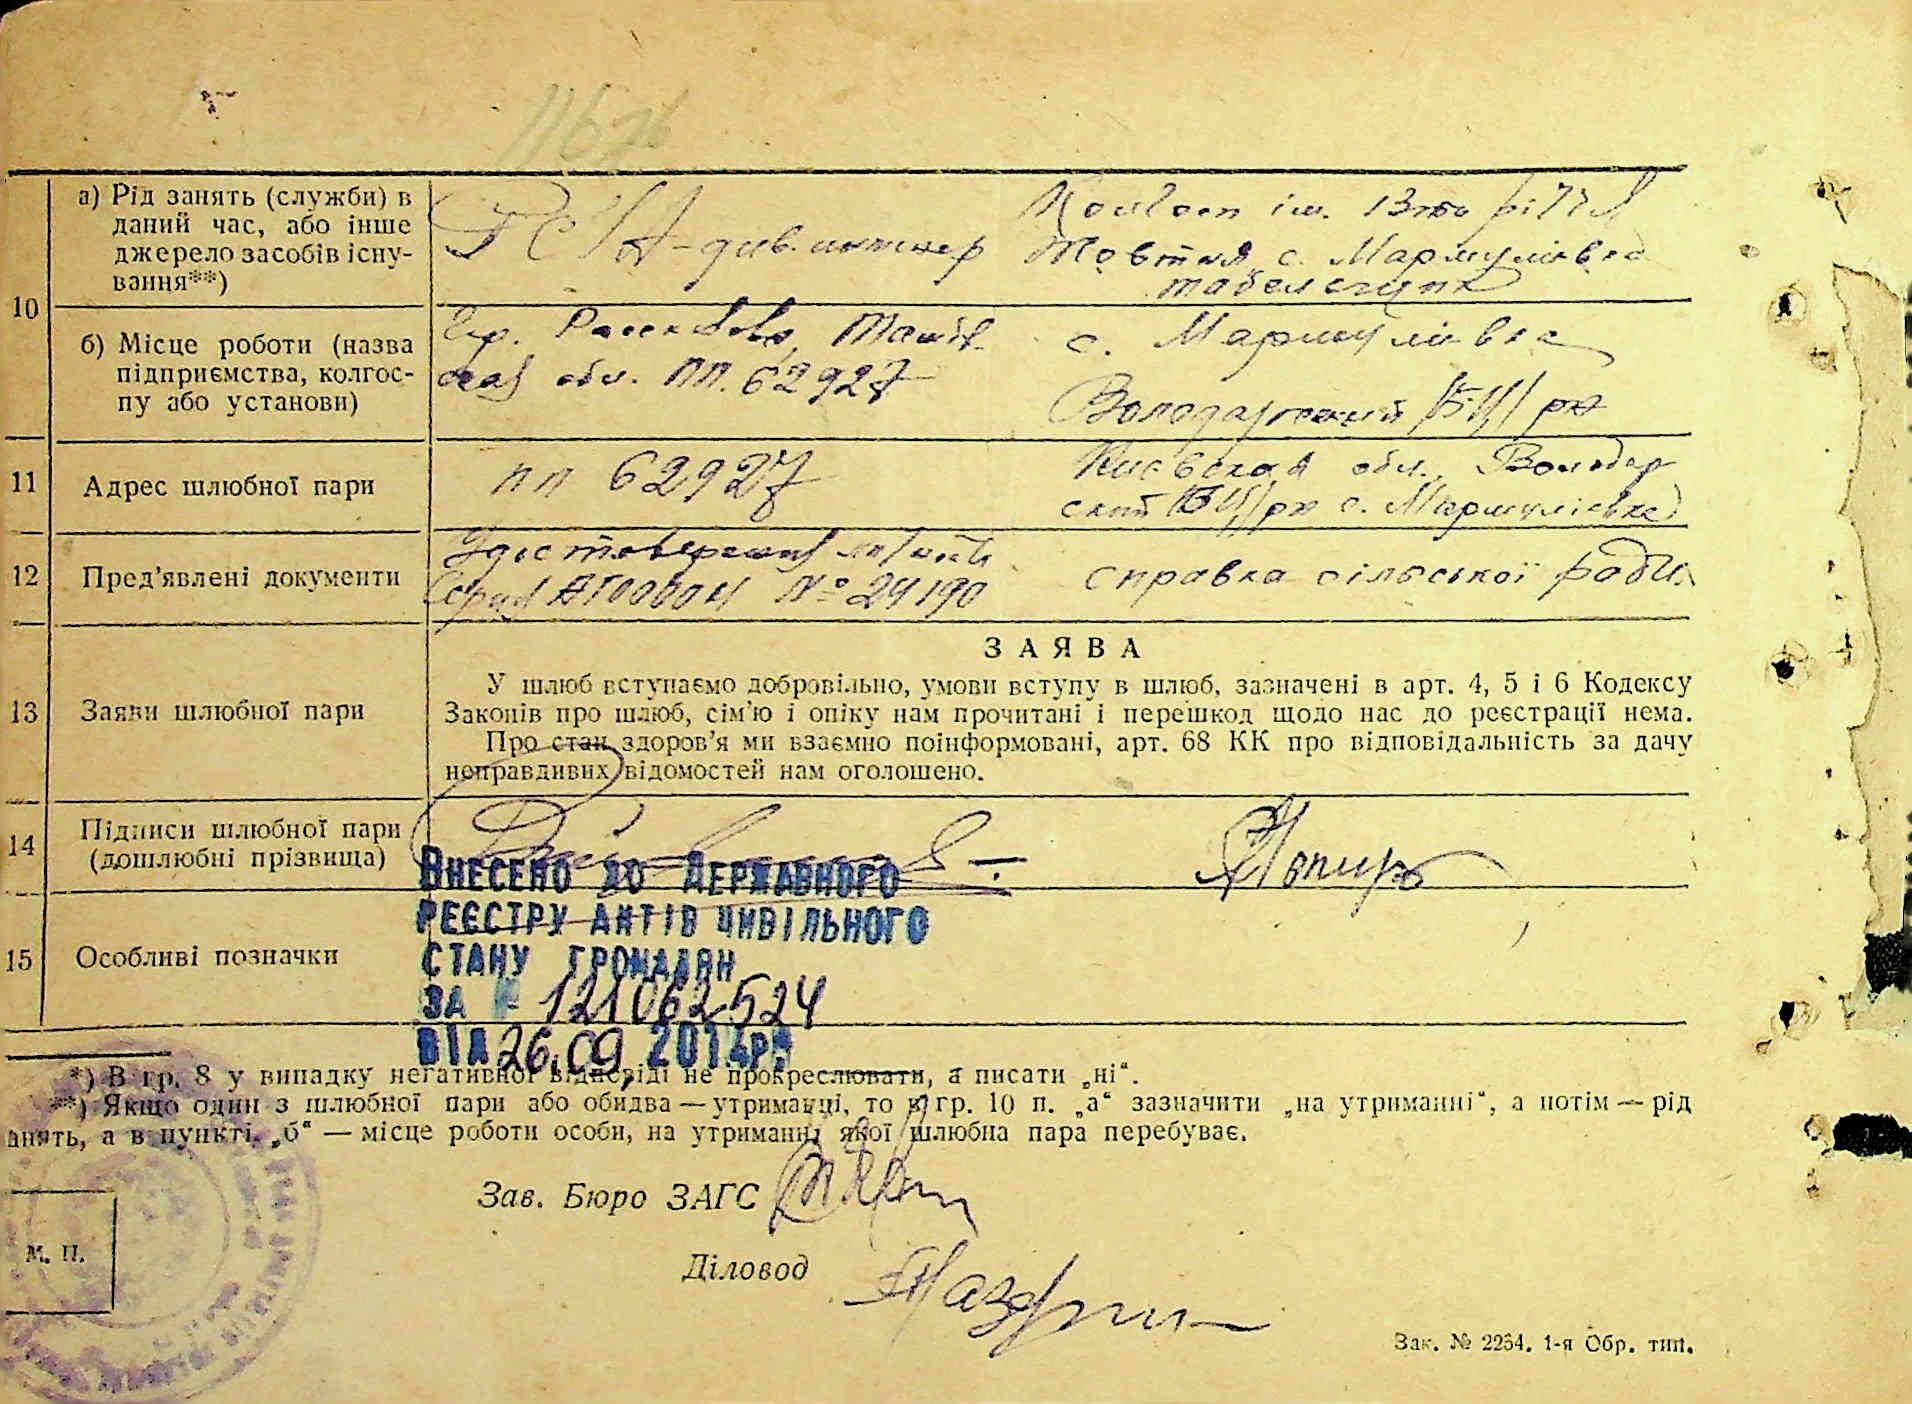 10
а) Рід занять (служби) в
даний час, або інше
джерело засобів існу-
вання**)
РСА - див. інженер
Колгосп ім. 13то річчя
Жовтня, с. Мармуліївка
табельщик
б) Місце роботи (назва
підприємства, колгос-
пу або установи)
обл. пп. 62927
с. Мармуліївка
Володарський /БЦ/ рн
11
Адрес шлюбної пари
пп 62927
Киевская обл., Володар
ский /БЦ/ рн с. Мармуліївка
12
Пред'явлені документи
Удостоверение личности
Серия № 24190
справка сільської ради
13
Заяви шлюбної пари
ЗАЯВА
У шлюб вступаємо добровільно, умови вступу в шлюб, зазначені в арт. 4, 5 і 6 Кодексу
Законів про шлюб, сім'ю і опіку нам прочитані і перешкод щодо нас до реєстрації нема.
Про стан здоров'я ми взаємно поінформовані, арт. 68 КК про відповідальність за дачу
неправдивих відомостей нам оголошено.
14
Підписи шлюбної пари
(дошлюбні прізвища)
15
Особливі позначки
Внесено до Державного
реєстру актів цивільного
стану громадян
за № 121062524
від 26.09, 2012р.
*) В гр. 8 у випадку негативної відповіді не прокреслювати, а писати „ні“.
**) Якщо один з шлюбної пари або обидва — утриманці, то в гр. 10 п. „а“ зазначити „на утриманні“, а потім — рід
анять, а в пункті „б“ — місце роботи особи, на утриманні якої шлюбна пара перебуває.
Зав. Бюро ЗАГС
Діловод
М. П.
Зак. № 2264. 1-я Обр. тип.